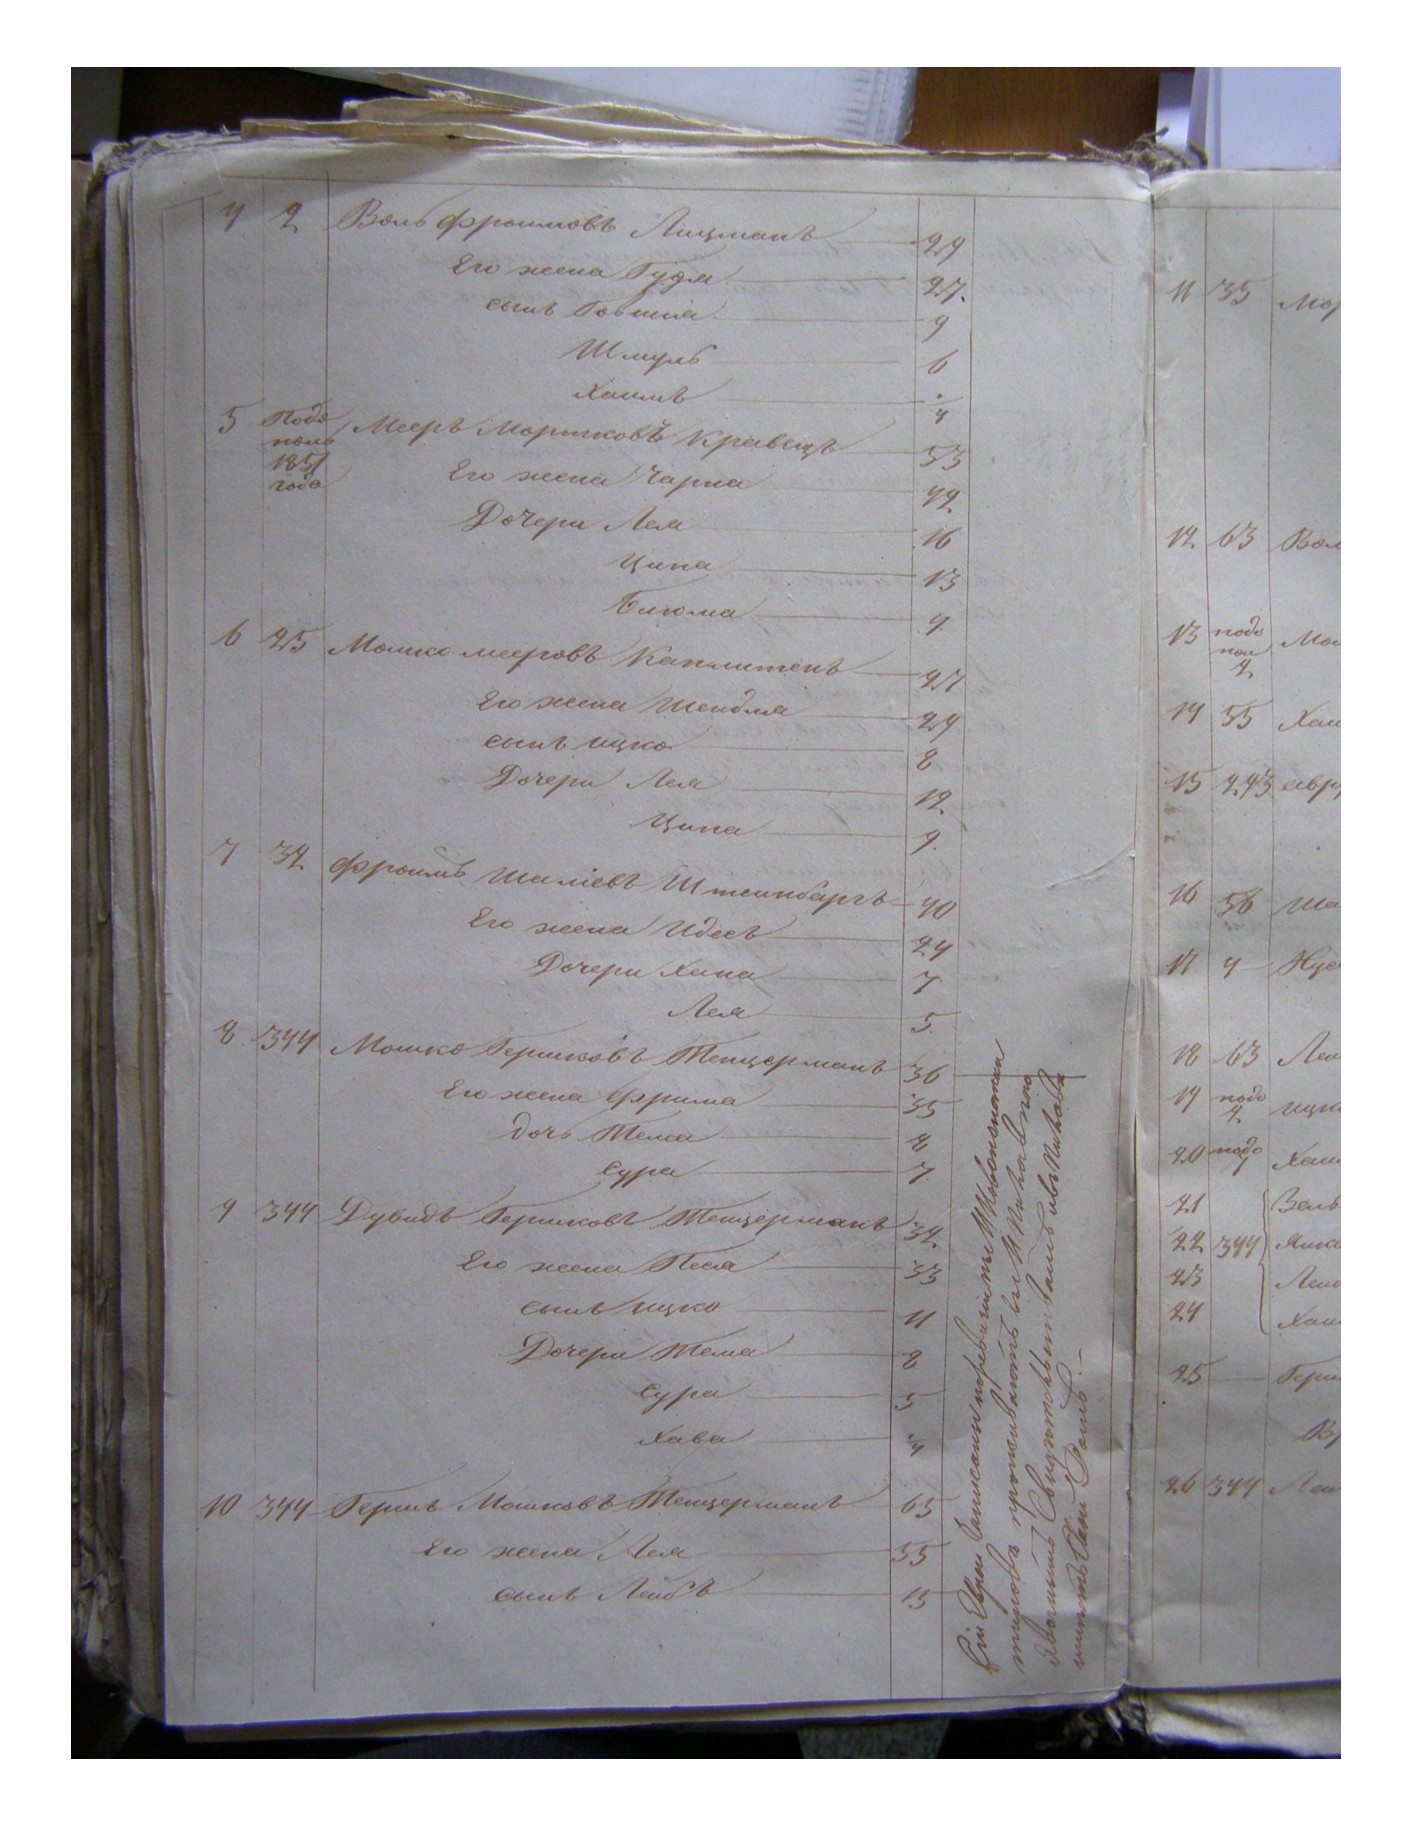 4 2 Воль Фроимовъ Лицманъ 29
Его жена Гудя 27.
сынъ Говшия 9
Шмуль 6
Хаимъ 4
5 Подо Мееръ Моршковъ Кравецъ 53
полн
1851
года
Его жена Чарна 42
Дочери Лея 16
Ципа 13
Блюма 9.
6 25 Мошко Мееровъ Каплитенъ 27
Его жена Шендля 29
сынъ Ицко 8
Дочери Лея 12.
Ципа 9.
7 32 Фроимъ Шаліевъ Штеинбаргъ 40
Его жена Идесъ 24
Дочери Хана 7
Лея 5.
8 344 Мошко Гершковъ Тенцерманъ 36
Его жена Фрима 35
дочь Тема 8
Сура 7.
9 344 Дувидъ Гершковъ Тенцерманъ 32
Его жена Песя 33
сынъ Ицко 11
Дочери Тема 8
Сура 5
Хава 4
10 344 Гершъ Мошковъ Тенцерманъ 65
Его жена Лея 55
сынъ Лейбъ 15
Сіи Евреи записаны по ревизіи
проживаютъ въ М. Пиковъ
11 35 Мор
12 63 Вол
13 подо Мо
пол
2
14 55 Хаи
15 243 Авру
16 56 Ша
17 4 Нус
18 63 Лей
19 подо Ицк
2
20 подо Хаи
21 Воль
22 344 Янке
23 Лей
24 Хаи
25 Герш
26 344 Лей